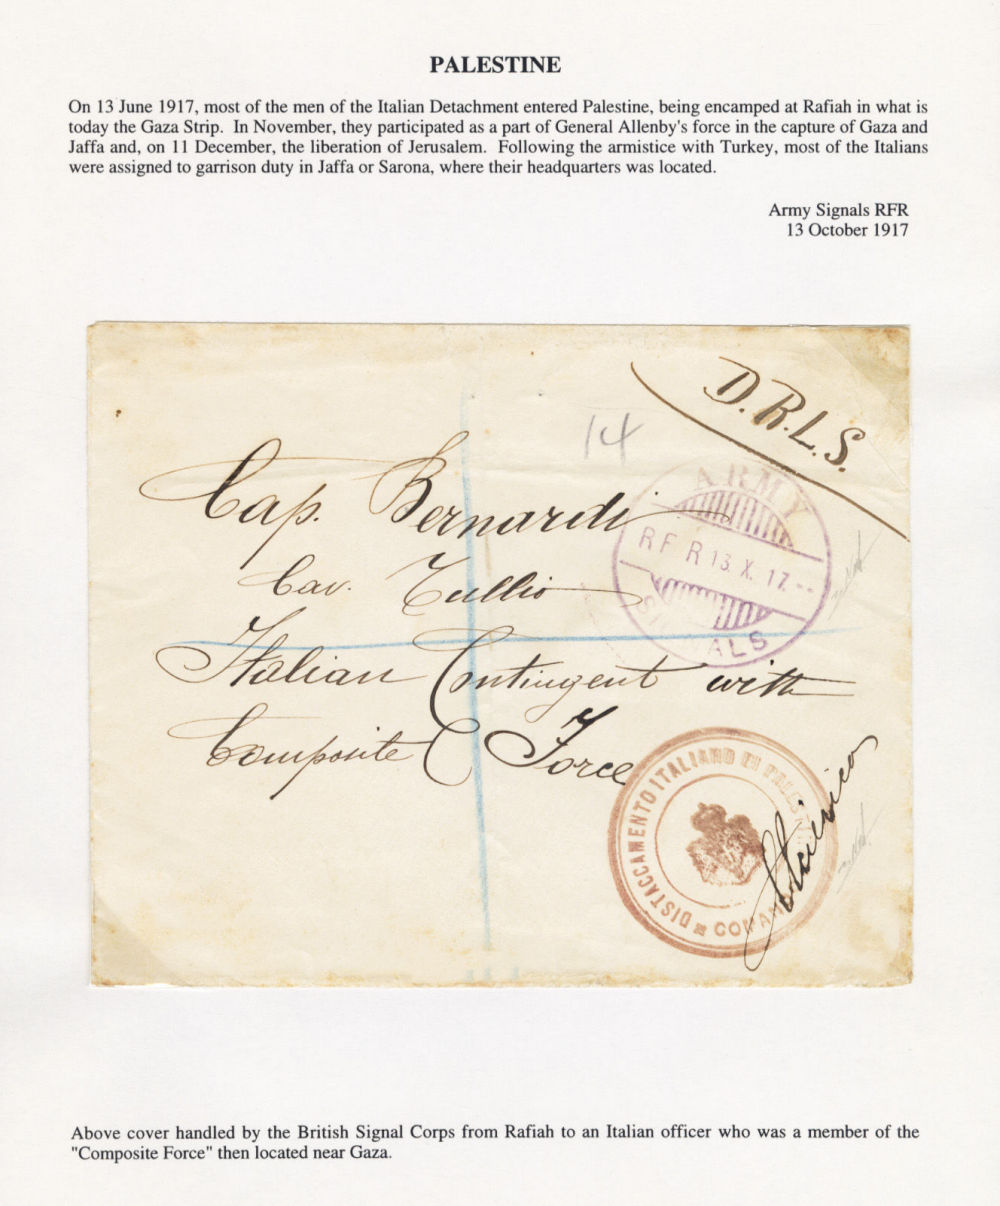 PALESTINE
On 13 June 1917, most of the men of the Italian Detachment entered Palestine, being encamped at Rafiah in what is
today the Gaza Strip. In November, they participated as a part of General Allenby's force in the capture of Gaza and
Jaffa and, on 11 December, the liberation of Jerusalem. Following the armistice with Turkey, most of the Italians
were assigned to garrison duty in Jaffa or Sarona, where their headquarters was located.
Army Signals RFR
13 October 1917
D.R.L.S.
14
ARMY
RFR 13.X.17.--
SIGNALS
Cap. Bernardi
Cav. Tullio
Italian Contingent with
Composite Force
DISTACCAMENTO ITALIANO DI PALESTINA
Above cover handled by the British Signal Corps from Rafiah to an Italian officer who was a member of the
"Composite Force" then located near Gaza.